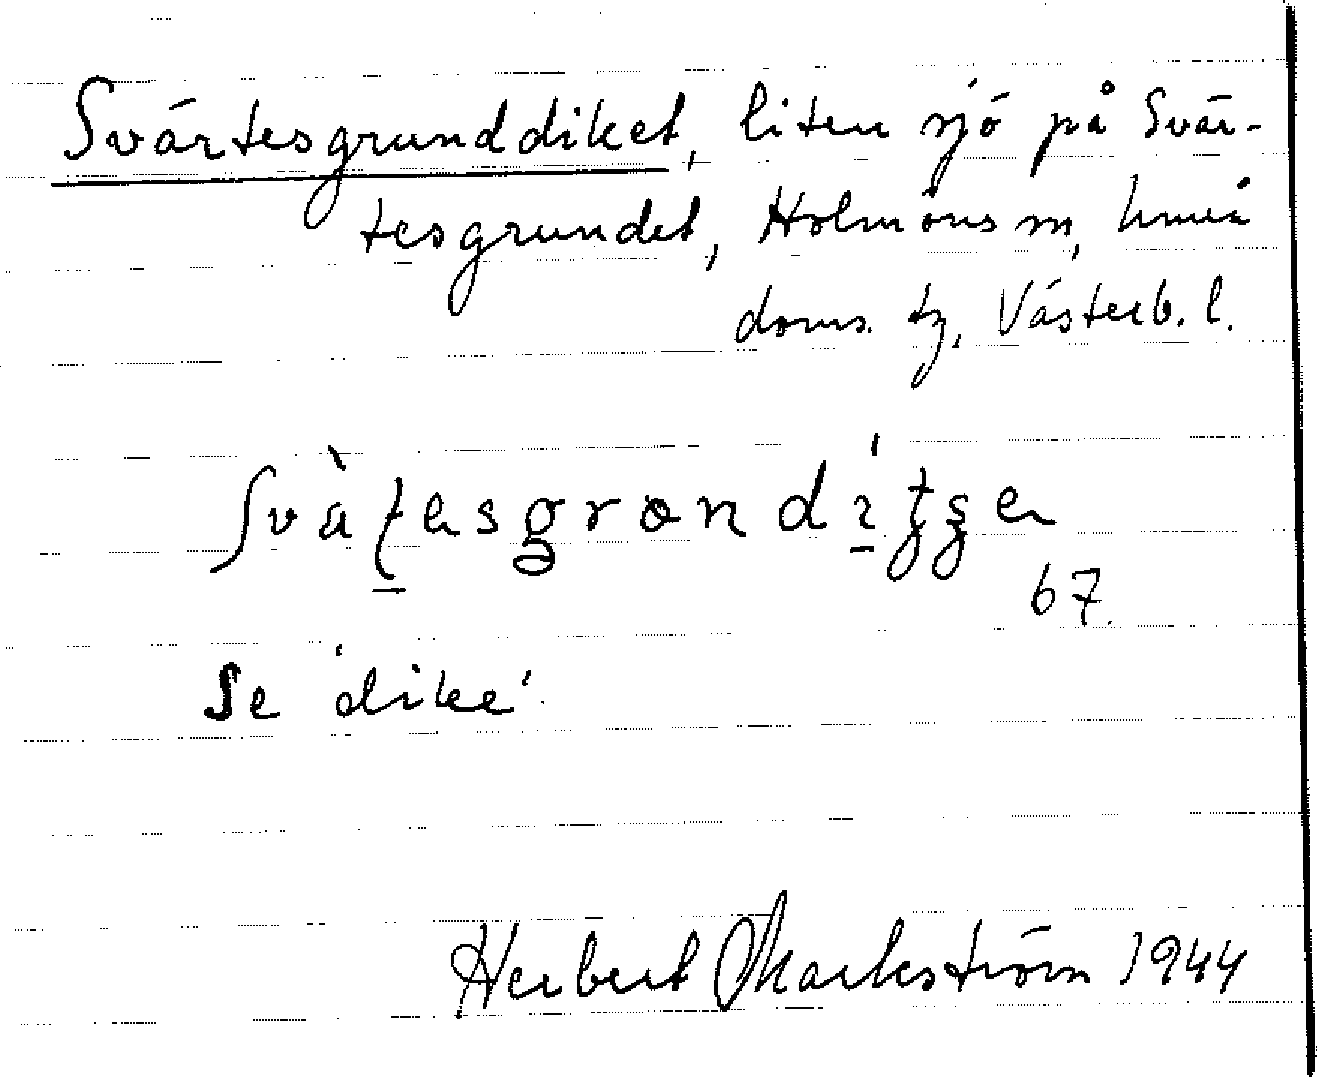 Svärtesgrunddiket, liten sjö på Svär-
tesgrundet, Holmöns sn, Umeå
doms. tg, Västerb. l.
67.
Se 'dike'.
Herbert Markström 1944